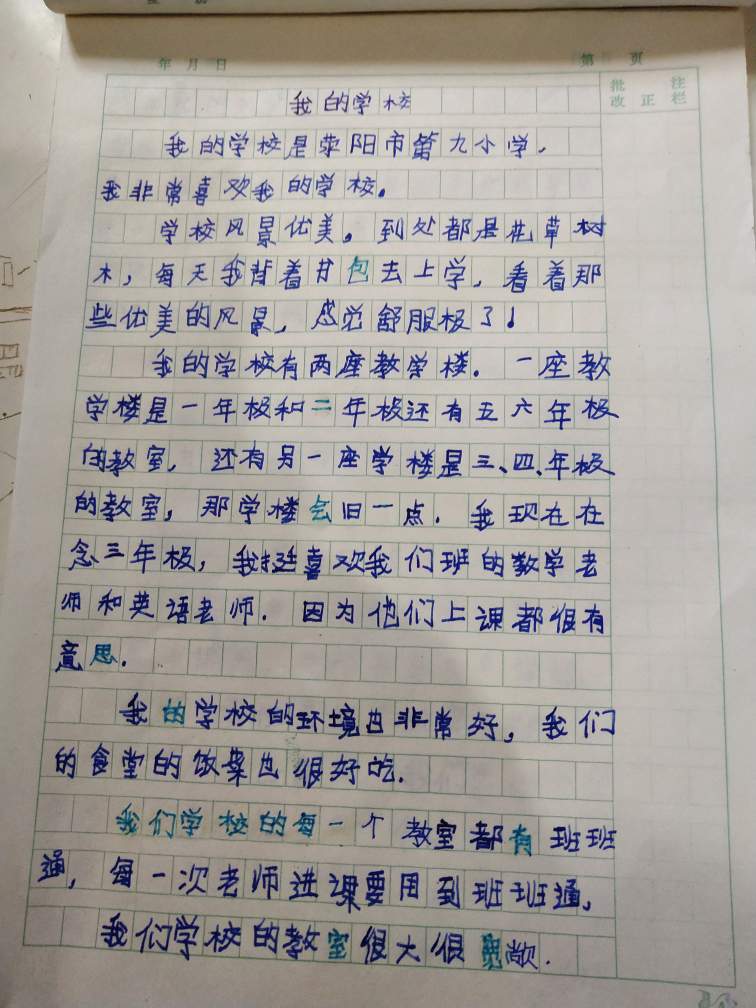 年 月 日 第 页
批 注
改 正 栏
我的学校
我的学校是荥阳市第九小学.
我非常喜欢我的学校。
学校风景优美。到处都是花草树
木，每天我背着书包去上学，看着那
些优美的风景，感觉舒服极了！
我的学校有两座教学楼.一座教
学楼是一年极和二年极还有五六年极
的教室，还有另一座学楼是三、四、年极
的教室，那学楼会旧一点.我现在在
念三年极，我挺喜欢我们班的数学老
师和英语老师.因为他们上课都很有
意思.
我的学校的环境也非常好，我们
的食堂的饭菜也很好吃.
我们学校的每一个教室都有班班
通，每一次老师进课要用到班班通，
我们学校的教室很大很宽敞.